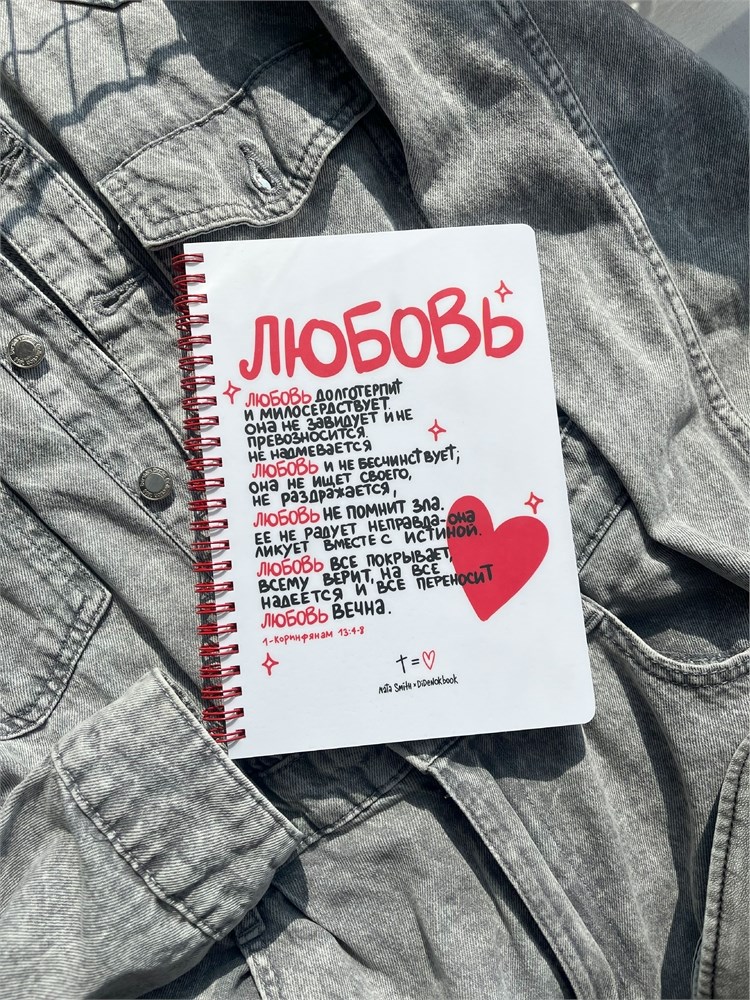 ЛЮБОВЬ
ЛЮБОВЬ ДОЛГОТЕРПИТ
И МИЛОСЕРДСТВУЕТ.
ОНА НЕ ЗАВИДУЕТ И НЕ
ПРЕВОЗНОСИТСЯ,
НЕ НАДМЕВАЕТСЯ
ЛЮБОВЬ И НЕ БЕСЧИНСТВУЕТ;
ОНА НЕ ИЩЕТ СВОЕГО,
НЕ РАЗДРАЖАЕТСЯ,
ЛЮБОВЬ НЕ ПОМНИТ ЗЛА.
ЕЕ НЕ РАДУЕТ НЕПРАВДА-ОНА
ЛИКУЕТ ВМЕСТЕ С ИСТИНОЙ.
ЛЮБОВЬ ВСЕ ПОКРЫВАЕТ,
ВСЕМУ ВЕРИТ, НА ВСЕ
НАДЕЕТСЯ И ВСЕ ПЕРЕНОСИТ
ЛЮБОВЬ ВЕЧНА.
1-КОРИНФЯНАМ 13:4-8
✝ = ♡
NATA SMITH × DIDENOKBOOK